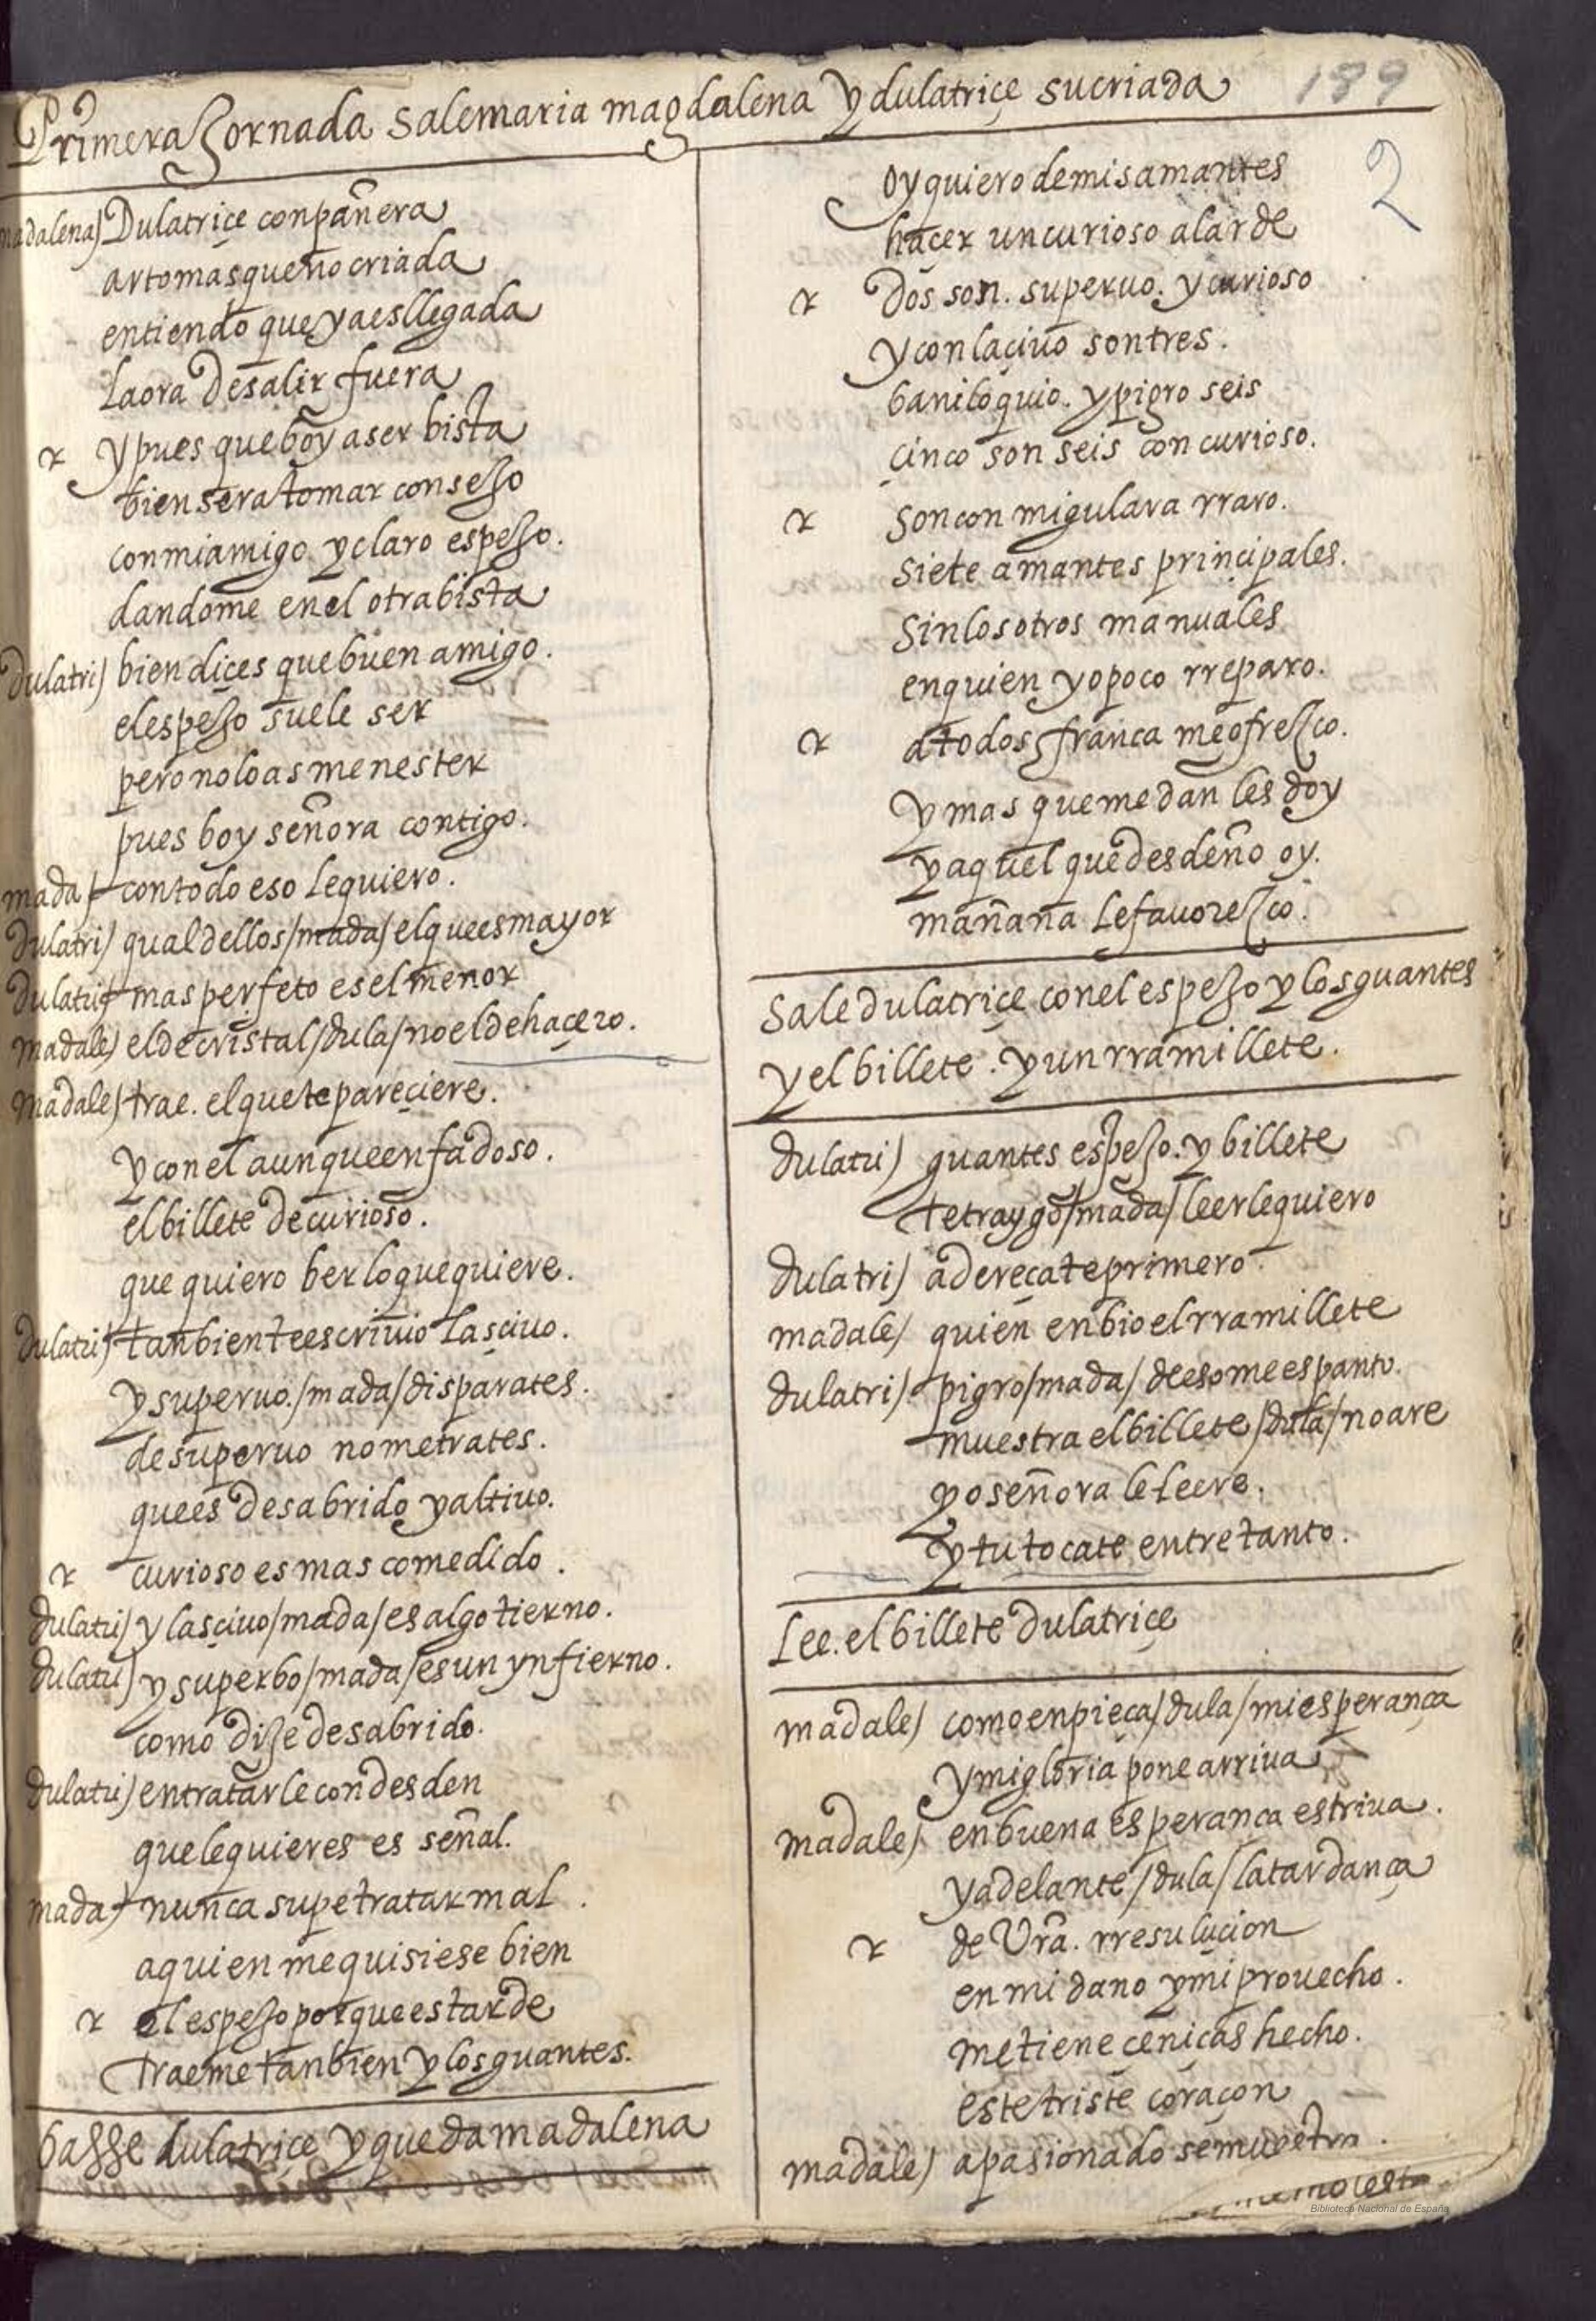 189
2
Primera Jornada sale maria magdalena y dulatriçe su criada
madalena) Dulatriçe conpañera
arto mas que no criada
entiendo que ya es llegada
la ora de salir fuera
r y pues que boy a ser bista
bien sera tomar consejo
con mi amigo y claro espejo.
dandome en el otra bista
dulatri) bien diçes que buen amigo.
el espejo suele ser
pero no lo as menester
pues boy señora contigo.
mada) con todo eso le quiero.
dulatri) qual dellos /mada/ el que es mayor
dulatri) mas perfeto es el menor
madale) el de cristal /dula/ no el de haçero.
madale) trae. el que te pareçiere.
y con el aunque enfadoso.
el billete de curioso.
que quiero ber lo que quiere.
dulatri) tanbien te escrivio lasçiuo.
y superuo. /mada/ disparates.
de superuo no me trates.
que es desabrido y altiuo.
r curioso es mas comedido.
dulatri) y lasçiuo /mada/ es algo tierno.
dulatri) y superbo /mada/ es un ynfierno.
como dije desabrido.
dulatri) en tratarle con desden
que le quieres es señal.
mada) nunca supe tratar mal.
a quien me quisiese bien
r el espejo porque es tarde
traeme tanbien y los guantes.
basse dulatriçe y queda madalena
oy quiero de mis amantes
haçer un curioso alarde
r Dos son. superuo. y curioso
y con laçiuo son tres.
baniloquio. y pigro seis
çinco son seis con curioso.
r son con mi gula va rraro.
siete amantes prinçipales.
sin los otros manuales
en quien yo poco rreparo.
r a todos franca me ofrezco.
y mas que me dan les doy
y aquel que desdeño oy.
mañana le fauorezco.
Sale dulatriçe con el espejo y los guantes
y el billete. y un rramillete.
dulatri) guantes espejo. y billete
te traygo /mada/ leerle quiero
dulatri) adereçate primero.
madale) quien enbio el rramillete
dulatri) pigro /mada/ de eso me espanto.
muestra el billete /dula/ no are
yo señora le leere.
y tu tocate entre tanto.
Lee. el billete dulatriçe
madale) como enpieça /dula/ mi esperança
y mi gloria pone arriua
madale) en buena esperança estriua.
y adelante /dula/ la tardança
r de Vra. rresuluçion
en mi daño y mi prouecho.
me tiene çeniças hecho.
este triste coraçon
madale) apasionado se muestra.